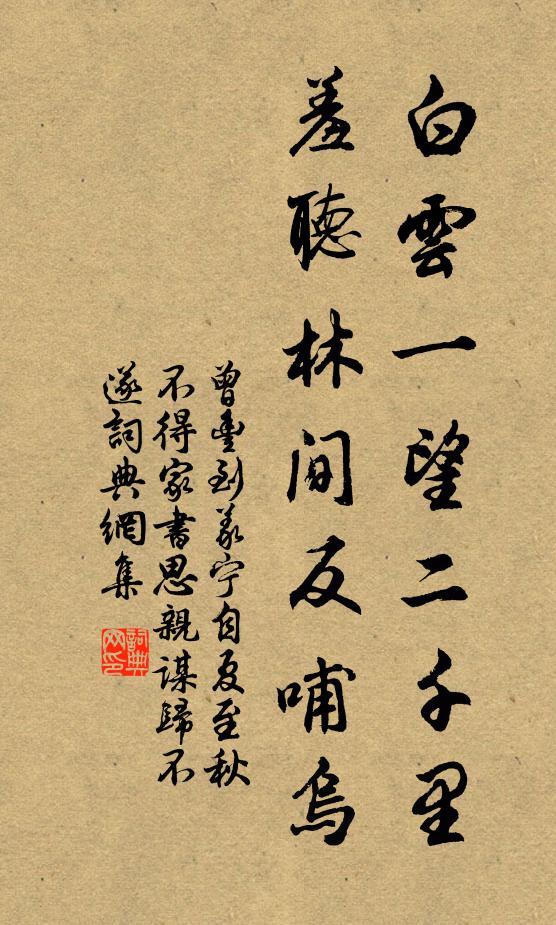 白雲一望二千里
羞聽林間反哺烏
曾豐到義寧自夏至秋
不得家書思親謀歸不
遂詞典網集
詞典
网印